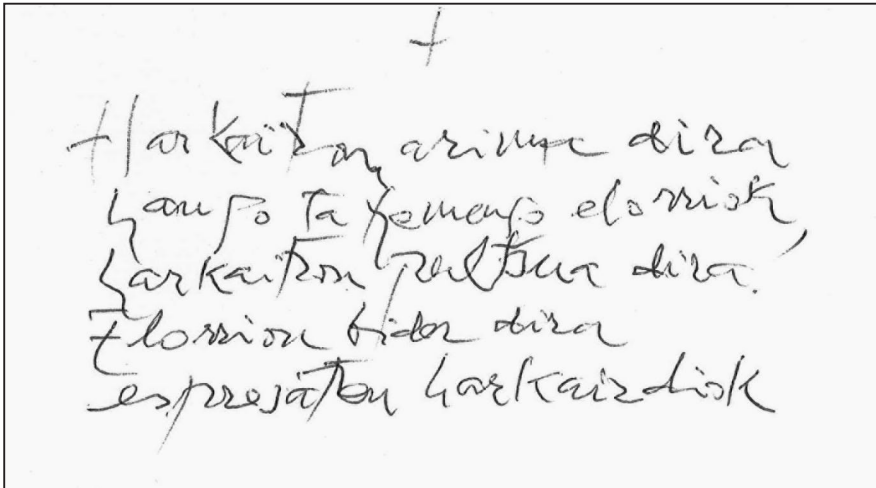 +
Harkaitzen arima dira
hango ta hemengo elorriok,
harkaitzen pultsua dira.
Elorrion bidez dira
espresatzen harkaizdiok